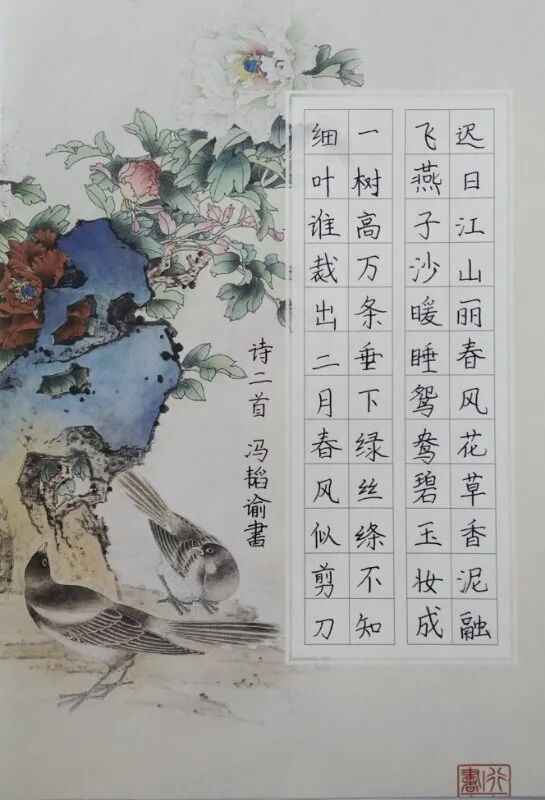 迟日江山丽春风花草香泥融
飞燕子沙暖睡鸳鸯碧玉妆成
一树高万条垂下绿丝绦不知
细叶谁裁出二月春风似剪刀
诗二首 冯韬谕書
行書